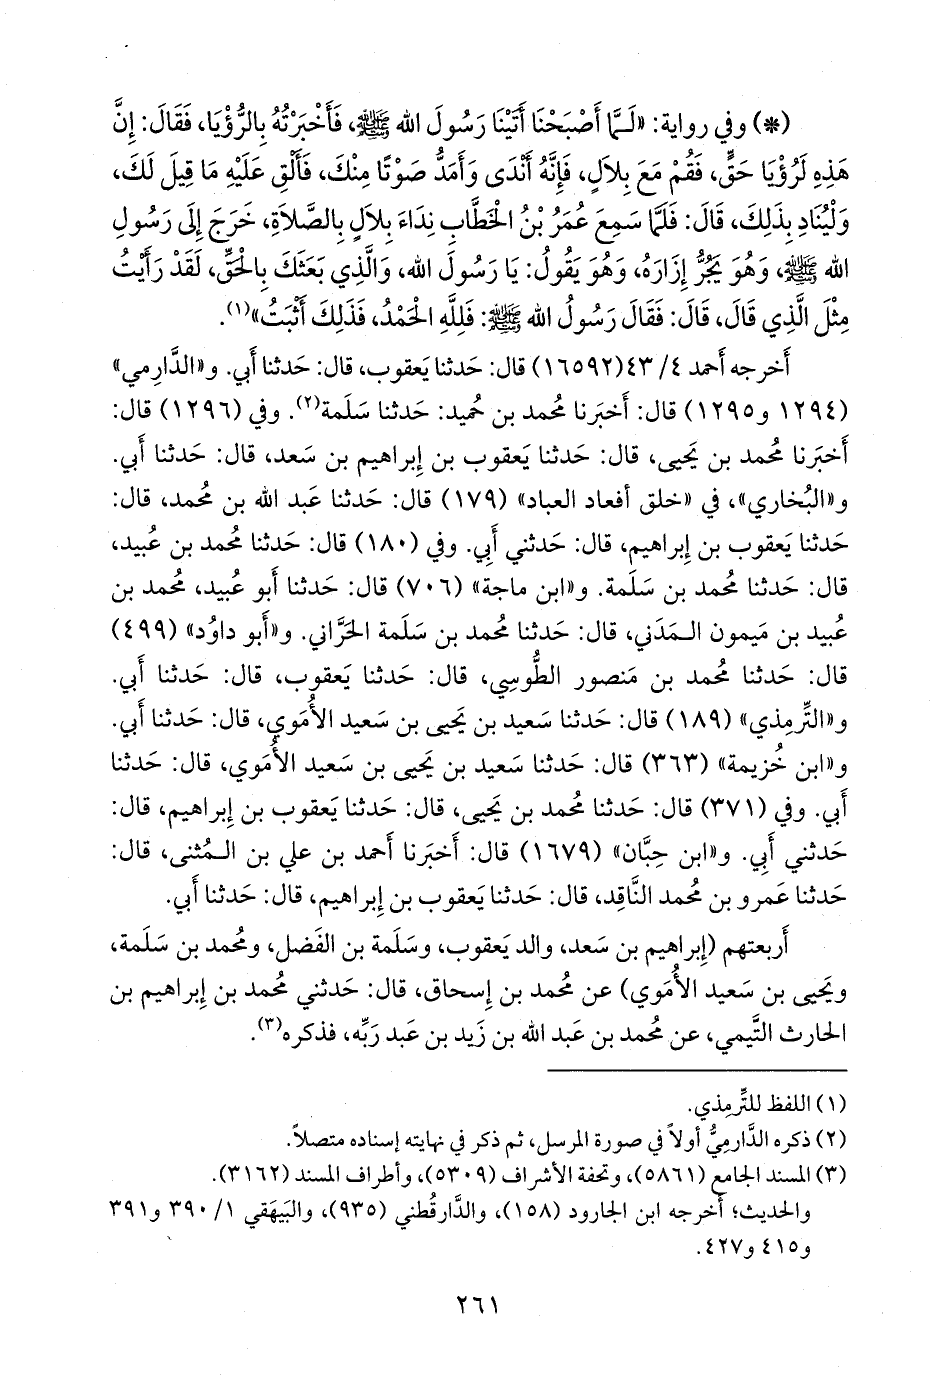 (*) وفي رواية: «لَـمَّا أَصْبَحْنَا أَتَيْنَا رَسُولَ الله ﷺ، فَأَخْبَرْتُهُ بِالرُّؤْيَا، فَقَالَ: إِنَّ
هَذِهِ لَرُؤْيَا حَقٍّ، فَقُمْ مَعَ بِلاَلٍ، فَإِنَّهُ أَنْدَى وَأَمَدُّ صَوْتًا مِنْكَ، فَأَلْقِ عَلَيْهِ مَا قِيلَ لَكَ،
وَلْيُنَادِ بِذَلِكَ، قَالَ: فَلَمَّا سَمِعَ عُمَرُ بْنُ الْخَطَّابِ نِدَاءَ بِلاَلٍ بِالصَّلاَةِ، خَرَجَ إِلَى رَسُولِ
الله ﷺ، وَهُوَ يَجُرُّ إِزَارَهُ، وَهُوَ يَقُولُ: يَا رَسُولَ الله، وَالَّذِي بَعَثَكَ بِالْحَقِّ، لَقَدْ رَأَيْتُ
مِثْلَ الَّذِي قَالَ، قَالَ: فَقَالَ رَسُولُ الله ﷺ: فَلِلَّهِ الْحَمْدُ، فَذَلِكَ أَثْبَتُ»(١).
أَخرجه أَحمد ٤/ ٤٣(١٦٥٩٢) قال: حَدثنا يَعقوب، قال: حَدثنا أَبي. و«الدَّارِمي»
(١٢٩٤ و١٢٩٥) قال: أَخبَرنا محُمد بن حُميد: حَدثنا سَلَمة(٢). وفي (١٢٩٦) قال:
أَخبَرنا مُحمد بن يَحيى، قال: حَدثنا يَعقوب بن إِبراهيم بن سَعد، قال: حَدثنا أَبي.
و«البُخاري»، في «خلق أفعاد العباد» (١٧٩) قال: حَدثنا عَبد الله بن مُحمد، قال:
حَدثنا يَعقوب بن إِبراهيم، قال: حَدثني أَبي. وفي (١٨٠) قال: حَدثنا مُحمد بن عُبيد،
قال: حَدثنا مُحمد بن سَلَمة. و«ابن ماجة» (٧٠٦) قال: حَدثنا أَبو عُبيد، مُحمد بن
عُبيد بن مَيمون الـمَدَني، قال: حَدثنا مُحمد بن سَلَمة الحَرَّاني. و«أَبو داوُد» (٤٩٩)
قال: حَدثنا مُحمد بن مَنصور الطُّوسِي، قال: حَدثنا يَعقوب، قال: حَدثنا أَبي.
و«التِّرمِذي» (١٨٩) قال: حَدثنا سَعيد بن يَحيى بن سَعيد الأُمَوي، قال: حَدثنا أَبي.
و«ابن خُزيمة» (٣٦٣) قال: حَدثنا سَعيد بن يَحيى بن سَعيد الأُمَوي، قال: حَدثنا
أَبي. وفي (٣٧١) قال: حَدثنا مُحمد بن يَحيى، قال: حَدثنا يَعقوب بن إِبراهيم، قال:
حَدثني أَبي. و«ابن حِبَّان» (١٦٧٩) قال: أَخبَرنا أَحمد بن علي بن الـمُثنى، قال:
حَدثنا عَمرو بن مُحمد النَّاقِد، قال: حَدثنا يَعقوب بن إِبراهيم، قال: حَدثنا أَبي.
أَربعتهم (إِبراهيم بن سَعد، والد يَعقوب، وسَلَمة بن الفَضل، ومُحمد بن سَلَمة،
ويَحيى بن سَعيد الأُمَوي) عن مُحمد بن إِسحاق، قال: حَدثني مُحمد بن إِبراهيم بن
الحارث التَّيمي، عن مُحمد بن عَبد الله بن زَيد بن عَبد رَبِّه، فذكره(٣).
(١) اللفظ للتِّرمِذي.
(٢) ذكره الدَّارِميُّ أولاً في صورة المرسل، ثم ذكر في نهايته إسناده متصلاً.
(٣) المسند الجامع (٥٨٦١)، وتحفة الأشراف (٥٣٠٩)، وأطراف المسند (٣١٦٢).
والحديث؛ أخرجه ابن الجارود (١٥٨)، والدَّارقُطني (٩٣٥)، والبَيهَقي ١/ ٣٩٠ و٣٩١
و٤١٥ و٤٢٧.
٢٦١